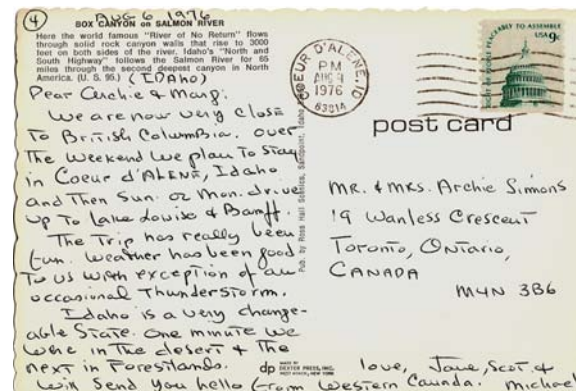 ④ AUG 6 1976
BOX CANYON on SALMON RIVER
Here the world famous "River of No Return" flows
through solid rock canyon walls that rise to 3000
feet on both sides of the river. Idaho's "North and
South Highway" follows the Salmon River for 65
miles through the second deepest canyon in North
America. (U. S. 95.) (IDAHO)
Dear Archie & Marg:
We are now very close
To British Columbia. over
The weekend we plan To Stay
in Coeur d'ALENE, Idaho
and Then Sun. or Mon. drive
up To Lake Louise & Bamff.
The Trip has really been
fun. Weather has been good
To us with exception of an
occasional Thunderstorm.
Idaho is a very change-
able State. One minute we
were in The desert & The
next in Forestlands.
Will Send You hello from Western Canada.
love, Jane, Scot. &
Michael
Pub. by Ross Hall Scenics, Sandpoint, Idaho
dp
MADE BY
DEXTER PRESS, INC.
WEST NYACK, NEW YORK
COEUR D'ALENE, ID
PM
AUG
1976
83814
PEACEABLY TO ASSEMBLE
USA 9c
post card
MR. & MRS. Archie Simons
19 Wanless Crescent
Toronto, Ontario,
CANADA
M4N 3B6